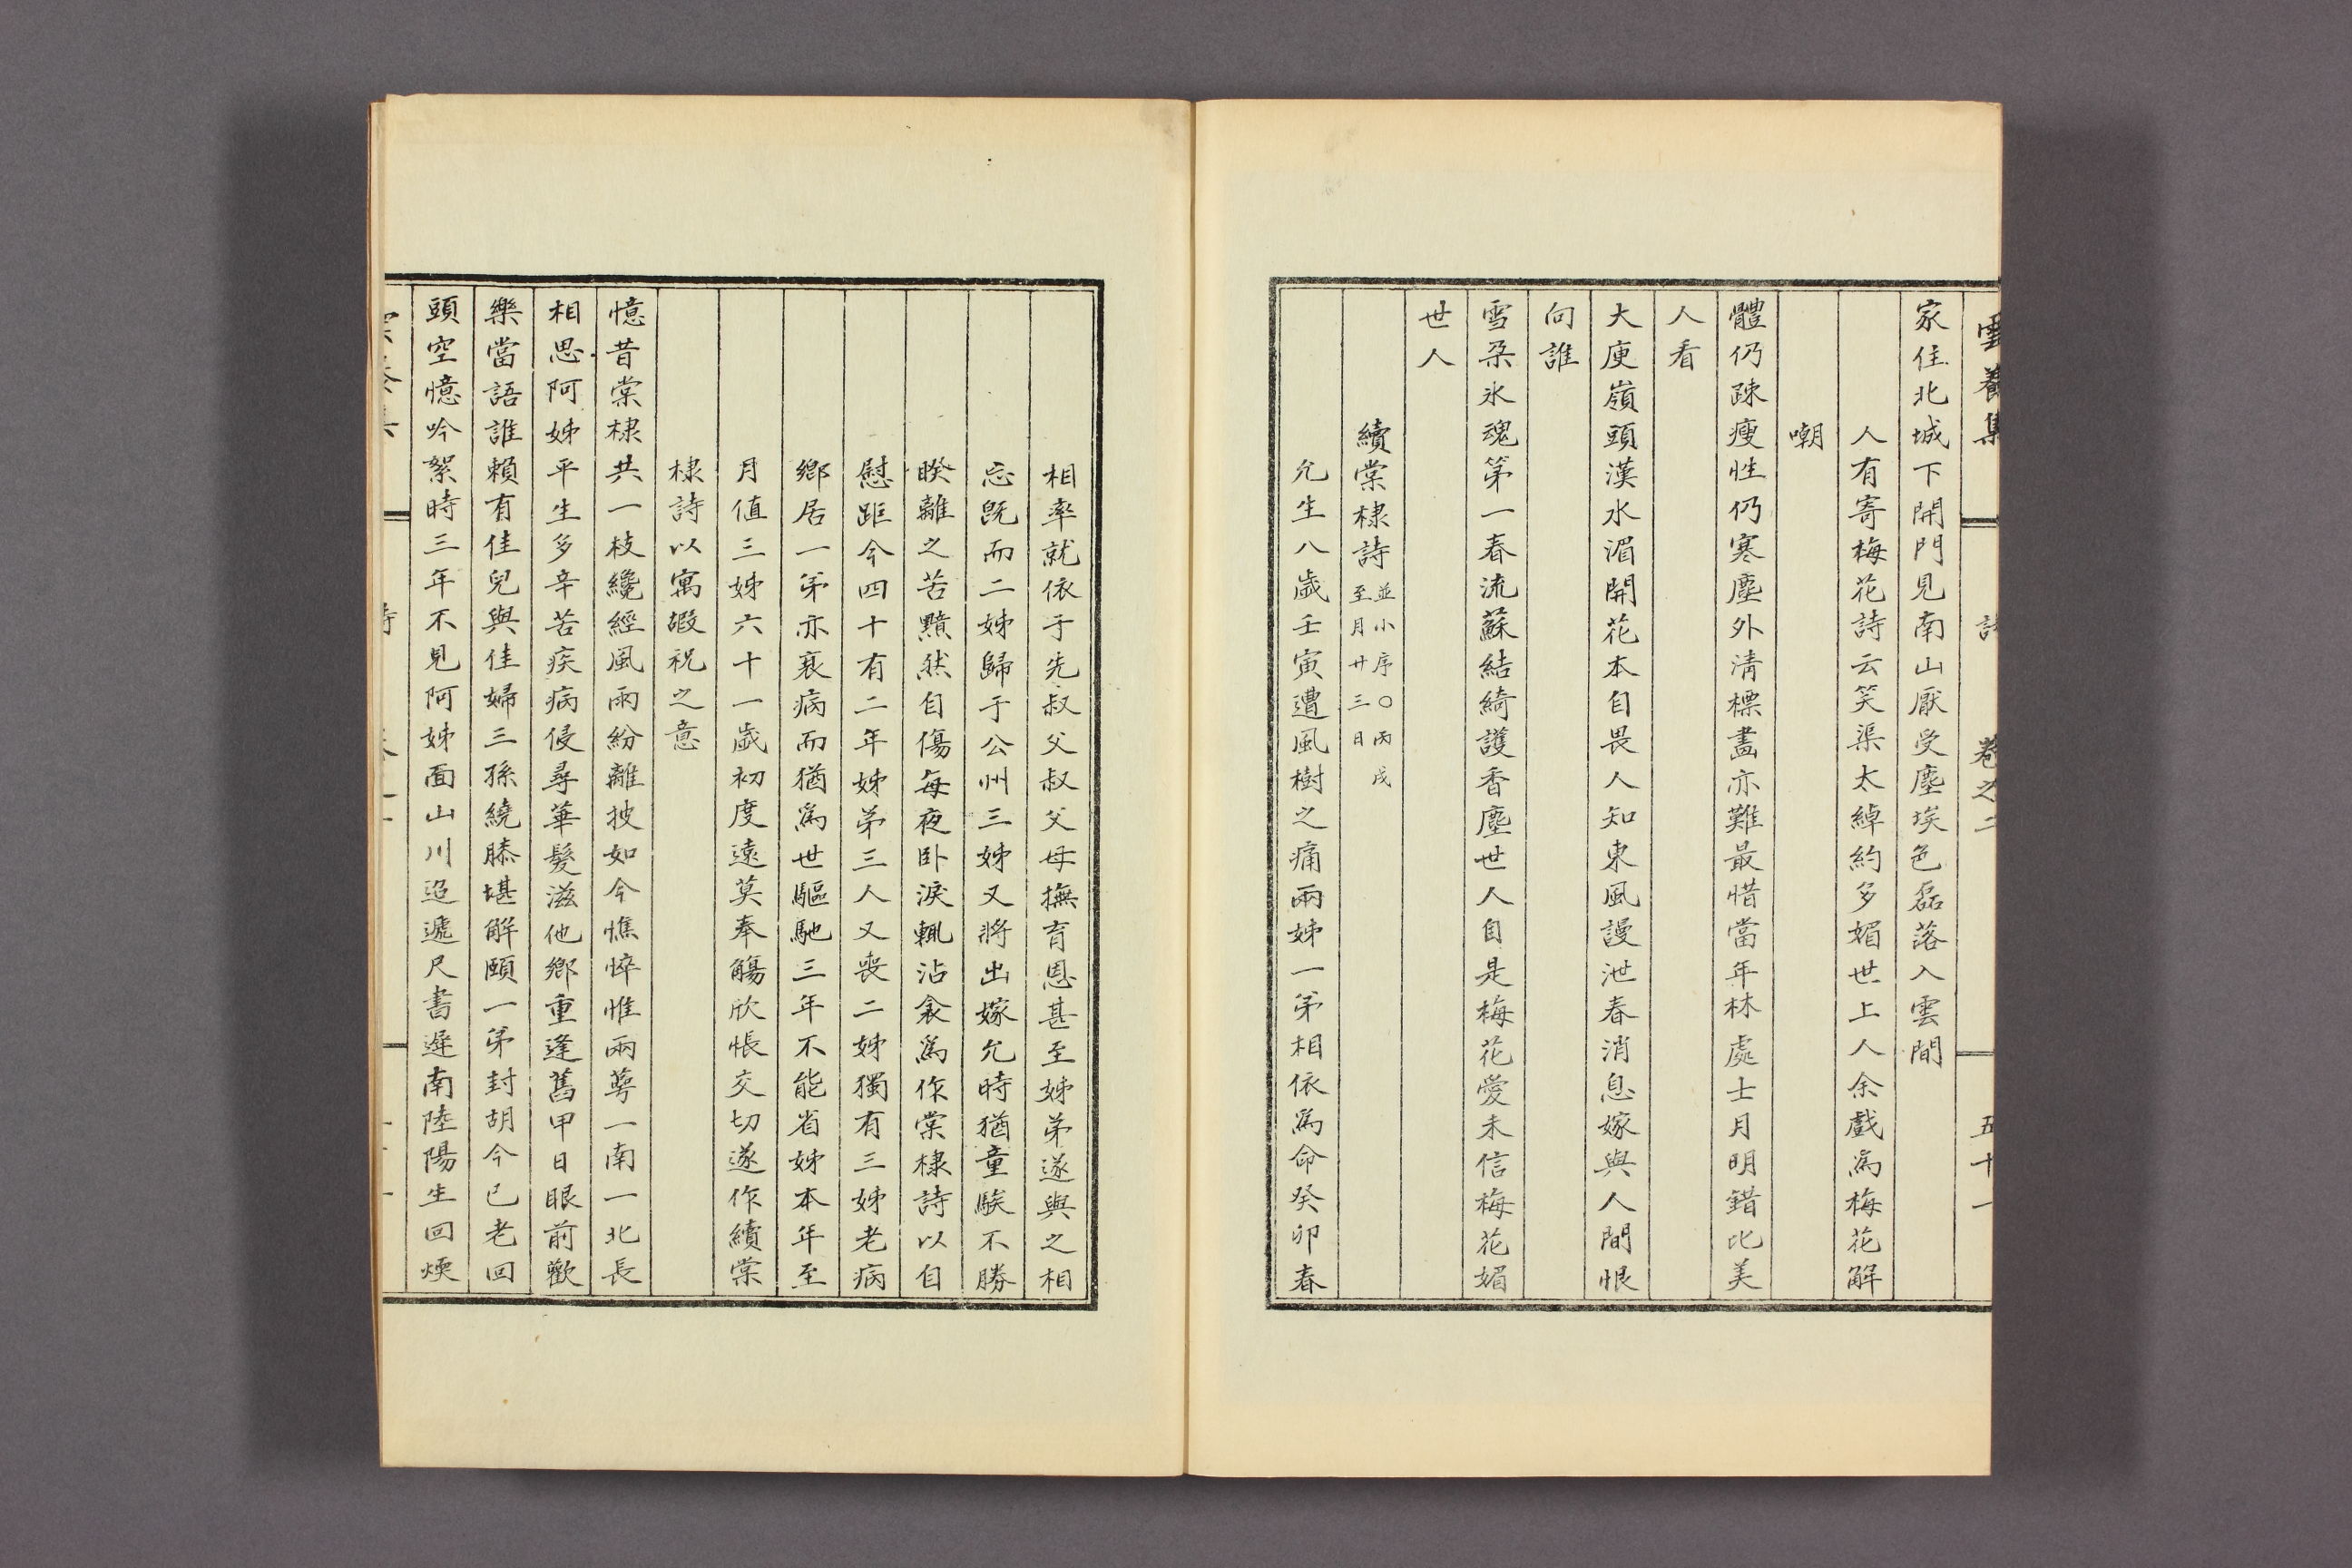 雲養集 詩 卷之二 五十一
家住北城下開門見南山厭受塵埃色磊落入雲間
人有寄梅花詩云笑渠太綽約多媚世上人余戲爲梅花解
嘲
體仍疎瘦性仍寒塵外淸標畵亦難最惜當年林處士月明錯比美
人看
大庾嶺頭漢水湄開花本自畏人知東風謾泄春消息嫁與人間恨
向誰
雪朶氷魂第一春流蘇結綺護香塵世人自是梅花愛未信梅花媚
世人
續棠棣詩並小序○丙戌至月廿三日
允生八歲壬寅遭風樹之痛兩姊一弟相依爲命癸卯春
相率就依于先叔父叔父母撫育恩甚至姊弟遂與之相
忘旣而二姊歸于公州三姊又將出嫁允時猶童騃不勝
睽離之苦黯然自傷每夜卧淚輒沾衾爲作棠棣詩以自
慰距今四十有二年姊弟三人又喪二姊獨有三姊老病
鄕居一弟亦衰病而猶爲世驅馳三年不能省姊本年至
月値三姊六十一歲初度遠莫奉觴欣悵交切遂作續棠
棣詩以寓嘏祝之意
憶昔棠棣共一枝纔經風雨紛離披如今憔悴惟兩萼一南一北長
相思阿姊平生多辛苦疾病侵尋華髮滋他鄕重逢舊甲日眼前歡
樂當語誰賴有佳兒與佳婦三孫繞膝堪解頤一弟封胡今已老回
頭空憶吟絮時三年不見阿姊面山川迢遞尺書遲南陸陽生回煗